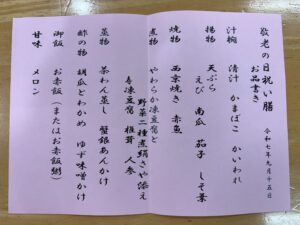 敬老の日祝い膳
お品書き
令和七年九月十五日
汁椀 清汁 かまぼこ かいわれ
揚物 天ぷら
えび 南瓜 茄子 しそ葉
焼物 西京焼き 赤魚
煮物 やわらか凍豆腐と
野菜二種煮絹さや添え
寿凍豆腐 椎茸 人参
蒸物 茶わん蒸し 蟹銀あんかけ
酢の物 胡瓜とわかめ ゆず味噌かけ
御飯 お赤飯(またはお赤飯粥)
甘味 メロン